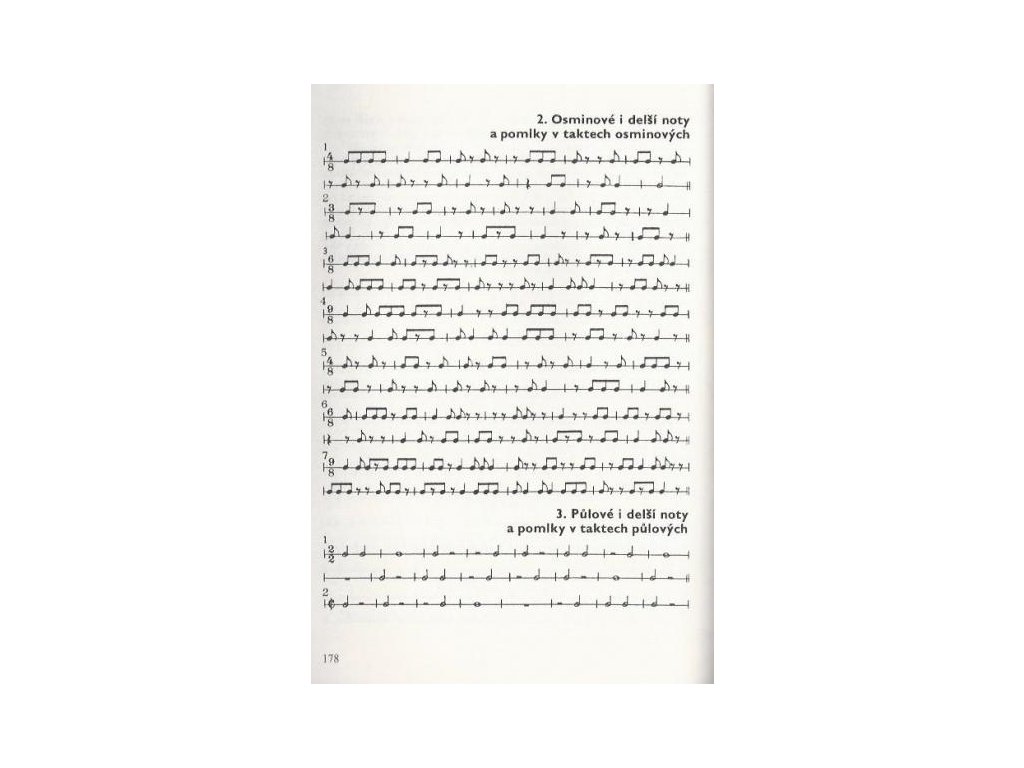 2. Osminové i delší noty
a pomlky v taktech osminových
1
4
8
2
3
8
3
6
8
4
9
8
5
4
8
6
6
8
7
9
8
3. Půlové i delší noty
a pomlky v taktech půlových
1
2
2
2
178